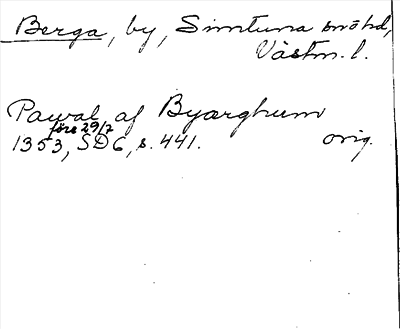 Berga, by, Simtuna snöhd,
Västm. l.
Pawal af Byærghum
före 29/7
1353, SD6, s. 441. orig.